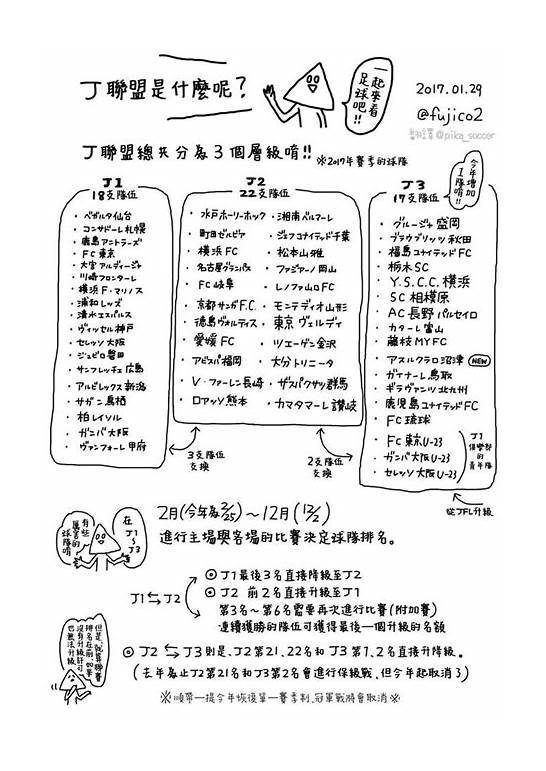 J聯盟是什麼呢？
一起來看
足球吧!!
2017.01.29
@fujico2
翻譯@pika_soccer
J聯盟總共分為3個層級唷!!
※2017年賽季的球隊
今年增加
1隊唷!!
J1
18支隊伍
・ベガルタ仙台
・コンサドーレ札幌
・鹿島アントラーズ
・FC東京
・大宮アルディージャ
・川崎フロンターレ
・横浜F・マリノス
・浦和レッズ
・清水エスパルス
・ヴィッセル神戸
・セレッソ大阪
・ジュビロ磐田
・サンフレッチェ広島
・アルビレックス新潟
・サガン鳥栖
・柏レイソル
・ガンバ大阪
・ヴァンフォーレ甲府
J2
22支隊伍
・水戸ホーリーホック ・湘南ベルマーレ
・町田ゼルビア ・ジェフユナイテッド千葉
・横浜FC ・松本山雅
・名古屋グランパス ・ファジアーノ岡山
・FC岐阜 ・レノファ山口FC
・京都サンガF.C. ・モンテディオ山形
・徳島ヴォルティス ・東京ヴェルディ
・愛媛FC ・ツエーゲン金沢
・アビスパ福岡 ・大分トリニータ
・V・ファーレン長崎 ・ザスパクサツ群馬
・ロアッソ熊本 ・カマタマーレ讃岐
J3
17支隊伍
・グルージャ盛岡
・ブラウブリッツ秋田
・福島ユナイテッドFC
・栃木SC
・Y.S.C.C.横浜
・SC相模原
・AC長野パルセイロ
・カターレ富山
・藤枝MYFC
・アスルクラロ沼津 NEW
・ガイナーレ鳥取
・ギラヴァンツ北九州
・鹿児島ユナイテッドFC
・FC琉球
・FC東京U-23
・ガンバ大阪U-23
・セレッソ大阪U-23
J1
俱樂部
的
青年隊
3支隊伍
交換
2支隊伍
交換
從JFL升級
在
J1
～
J3
有些
厲害的
球隊唷
2月(今年為2/25)～12月(12/2)
進行主場與客場的比賽決定球隊排名。
J1⇆J2
◎J1最後3名直接降級至J2
◎J2 前2名直接升級至J1
第3名～第6名需要再次進行比賽(附加賽)
連續獲勝的隊伍可獲得最後一個升級的名額
但是,就算聯賽
排名在前,如果
沒有升級許可
也無法升級
◎J2⇆J3則是、J2第21、22名和J3第1、2名直接升降級。
(去年為止J2第21名和J3第2名會進行保級戰,但今年起取消了)
※順帶一提今年恢復單一賽季制、冠軍戰將會取消※